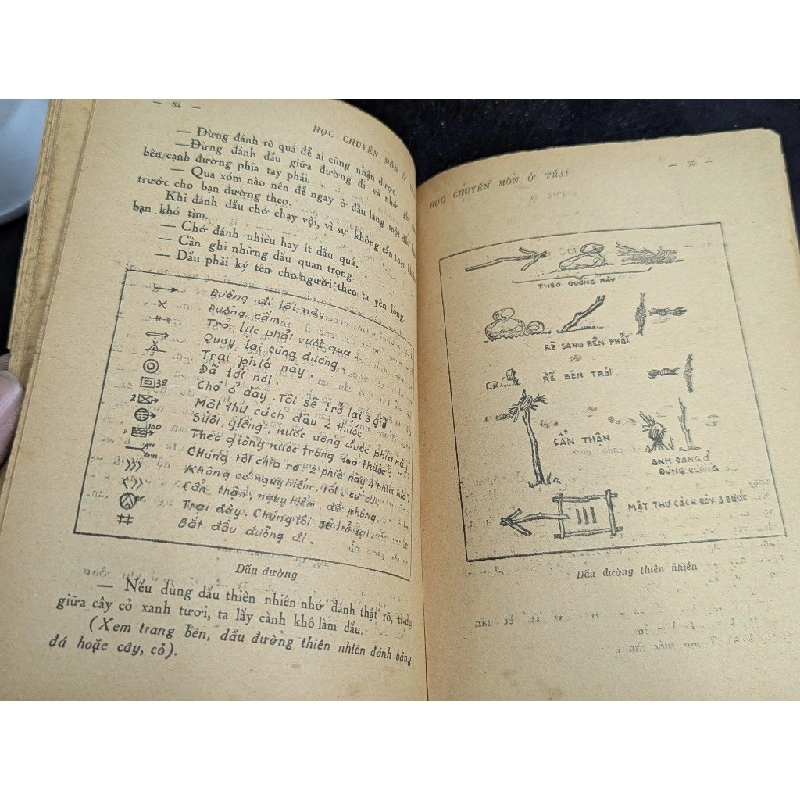 — 84 —
HỌC CHUYÊN MÔN Ở
— Đừng đánh rõ quá để ai cũng nhận được.
— Đừng đánh dấu giữa đường đi và
bên cạnh đường phía tay phải.
— Qua xóm nào nên để ngay ở đầu làng một dấu
trước cho bạn đường theo.
Khi đánh dấu chớ chạy vội, vì sự không cẩn
bạn khó tìm.
— Chớ đánh nhiều hay ít dấu quá.
— Cần ghi những dấu quan trọng.
— Dấu phải ký tên cho người theo ta yên lòng.
Đường đi lối này
Đường cấm
Trở lực phải vượt qua
Quay lại cùng đường
Trại phía này.
Đã tới nơi
Chờ ở đây. Tôi sẽ trở lại
Mật thư cách đâu 2 thước
Suối, giếng, nước uống được phía
Theo giòng nước trong 200 thước
Chúng tôi chia ra 2 phía này
Không có nguy hiểm. Tốt
Cẩn thận, nguy hiểm đề phòng.
Trại đây. Chúng tôi sẽ trở lại
Bắt đầu đường đi.
Dấu đường
— Nếu dùng dấu thiên nhiên nhớ đánh thật rõ,
giữa cây cỏ xanh tươi, ta lấy cành khô làm dấu.
(Xem trang bên, dấu đường thiên nhiên đánh bằng
đá hoặc cây, cỏ).
HỌC CHUYÊN MÔN Ở TRẠI
THEO ĐƯỜNG NÀY
RẼ SANG BÊN PHẢI
RẼ BÊN TRÁI
CẨN THẬN
ANH ĐANG Ở
ĐÚNG ĐƯỜNG
MẬT THƯ CÁCH ĐÂY 3 BƯỚC
Dấu đường thiên nhiên